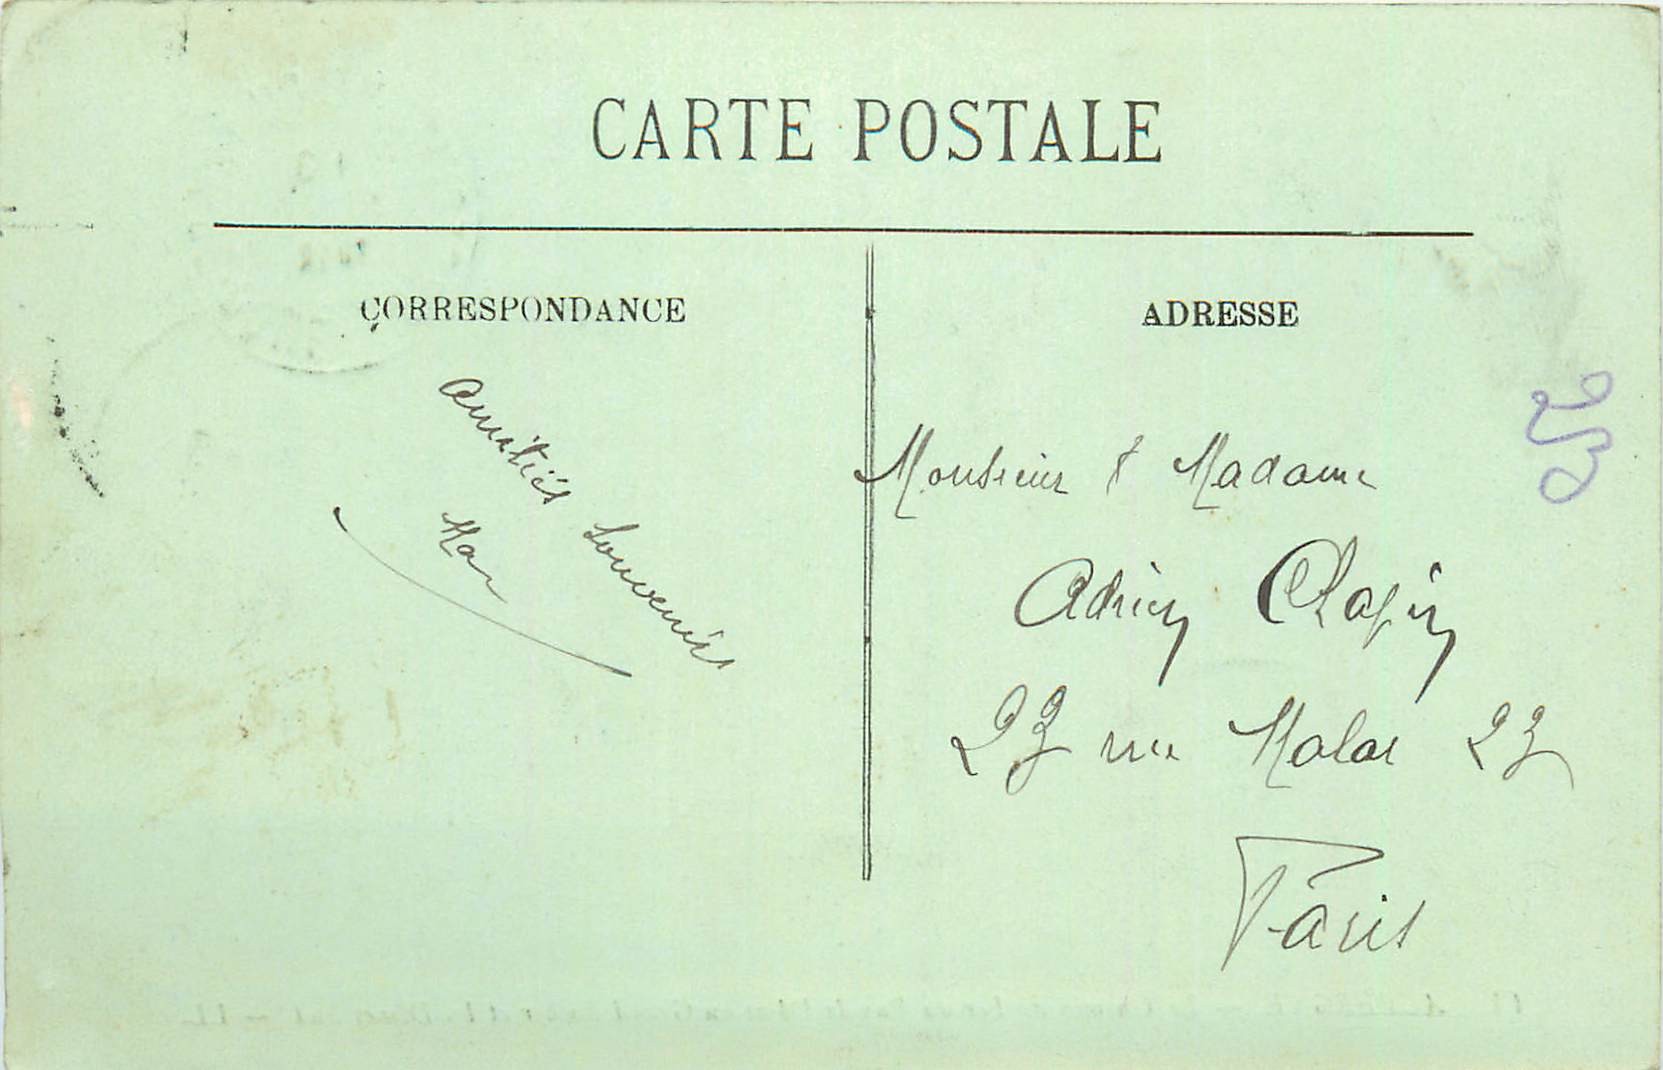 CARTE POSTALE
CORRESPONDANCE
Amitiés Souvenirs
ADRESSE
Monsieur & Madame
Adrien Chapin
23 rue Malar 23
Paris